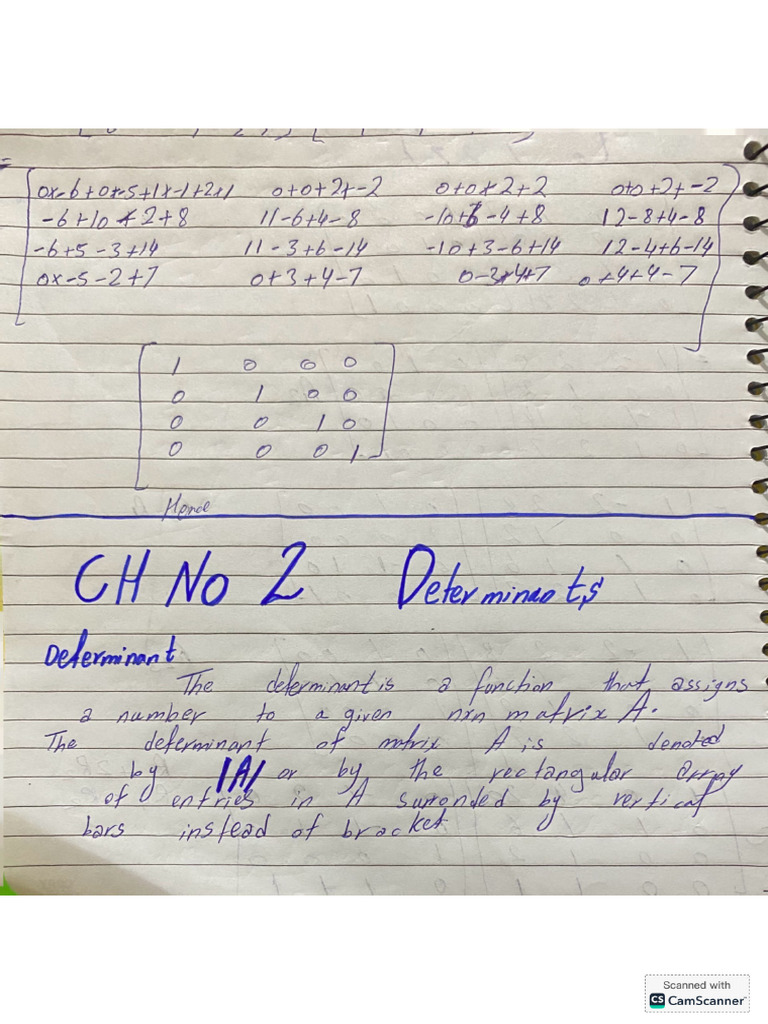 =
0x-6+0x-5+1x-1+2x1 0+0+2+-2 0+0+2+2 0+0+2+-2
-6+10+2+8 11-6+4-8 -10+6-4+8 12-8+4-8
-6+5-3+14 11-3+6-14 -10+3-6+14 12-4+6-14
0x-5-2+7 0+3+4-7 0-3-4+7 0+4+4-7
1 0 0 0
0 1 0 0
0 0 1 0
0 0 0 1
CH No 2 Determinants
Determinant
The determinant is a function that assigns
a number to a given nxn matrix A.
The determinant of matrix A is denoted
by |A| or by the rectangular array
of entries in A surronded by vertical
bars instead of bracket
Scanned with
CS CamScanner